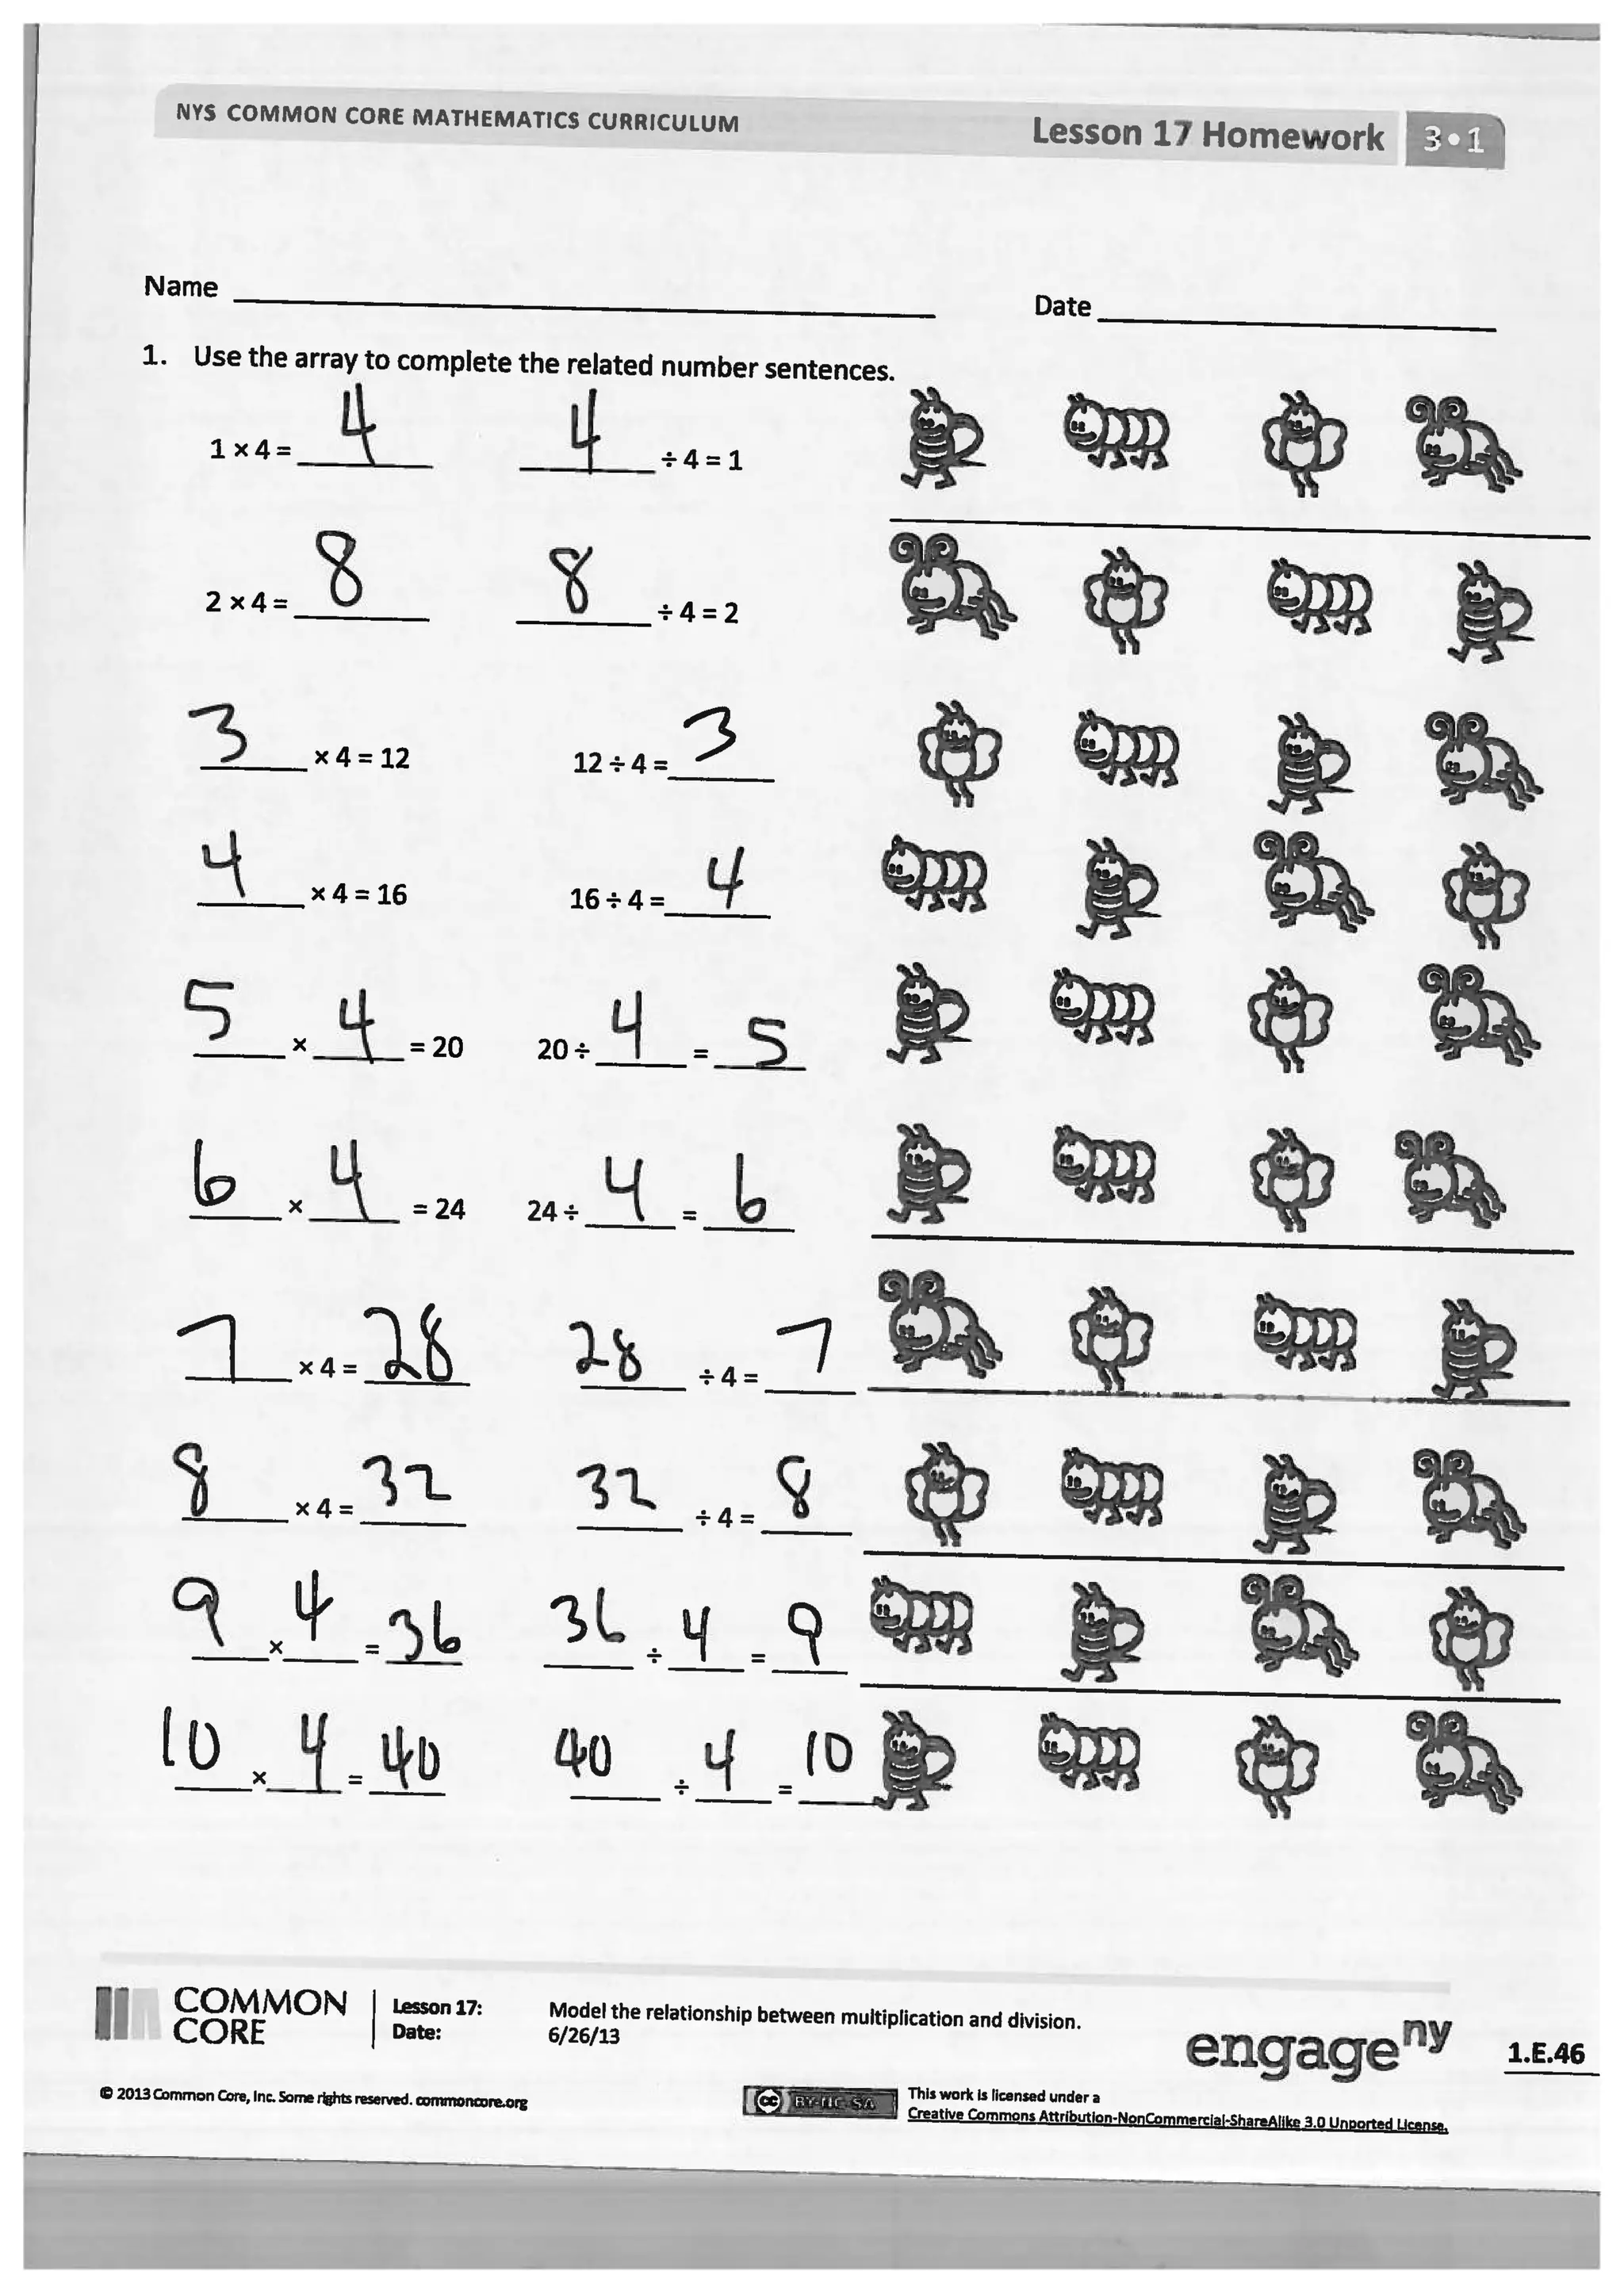 NYS COMMON CORE MATHEMATICS CURRICULUM Lesson 17 Homework 3•1
Name Date
1. Use the array to complete the related number sentences.
1 × 4 = 4 4 ÷ 4 = 1
2 × 4 = 8 8 ÷ 4 = 2
3 × 4 = 12 12 ÷ 4 = 3
4 × 4 = 16 16 ÷ 4 = 4
5 × 4 = 20 20 ÷ 4 = 5
6 × 4 = 24 24 ÷ 4 = 6
7 × 4 = 28 28 ÷ 4 = 7
8 × 4 = 32 32 ÷ 4 = 8
9 × 4 = 36 36 ÷ 4 = 9
10 × 4 = 40 40 ÷ 4 = 10
COMMON CORE
Lesson 17: Model the relationship between multiplication and division.
Date: 6/26/13
engage ny 1.E.46
© 2013 Common Core, Inc. Some rights reserved. commoncore.org
cc BY-NC-SA
This work is licensed under a
Creative Commons Attribution-NonCommercial-ShareAlike 3.0 Unported License.